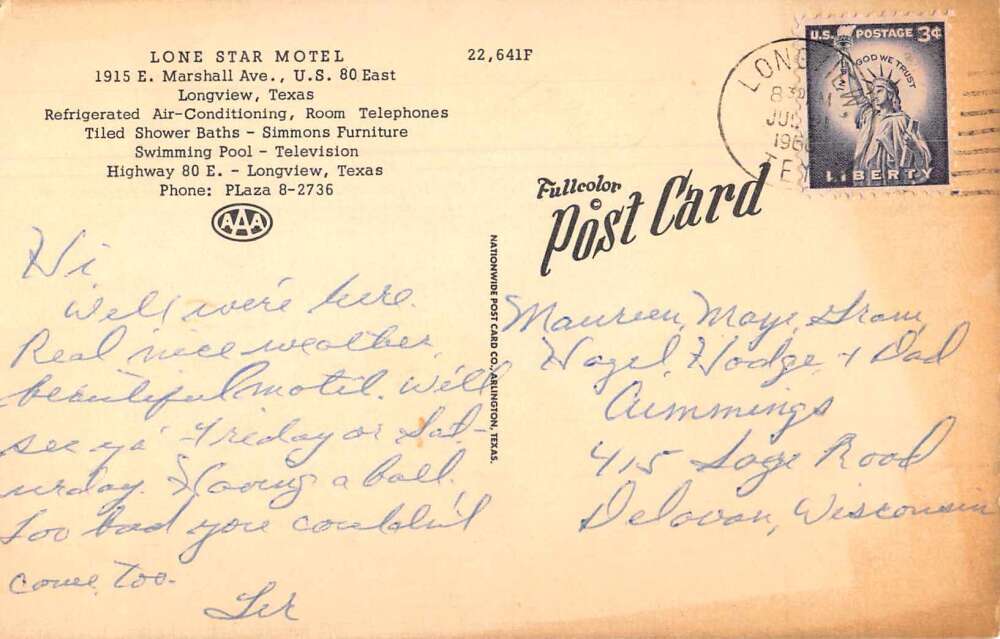 LONE STAR MOTEL
1915 E. Marshall Ave., U.S. 80 East
Longview, Texas
Refrigerated Air-Conditioning, Room Telephones
Tiled Shower Baths - Simmons Furniture
Swimming Pool - Television
Highway 80 E. - Longview, Texas
Phone: PLaza 8-2736
AAA
22,641F
U.S. POSTAGE 3¢
IN GOD WE TRUST
LIBERTY
LONGVIEW
830 M
JUL
196
TEX
Fullcolor
©
Post Card
NATIONWIDE POST CARD CO., ARLINGTON, TEXAS.
Hi
Well we're here.
Real nice weather,
beautiful motel. Will
see ya' Friday or Sat-
urday. Having a ball.
Too bad you couldn't
come, too.
Maureen, Maye, Gram,
Hazel, Hodge, + Dad
Cummings
415 Sage Road
Delavan, Wisconsin